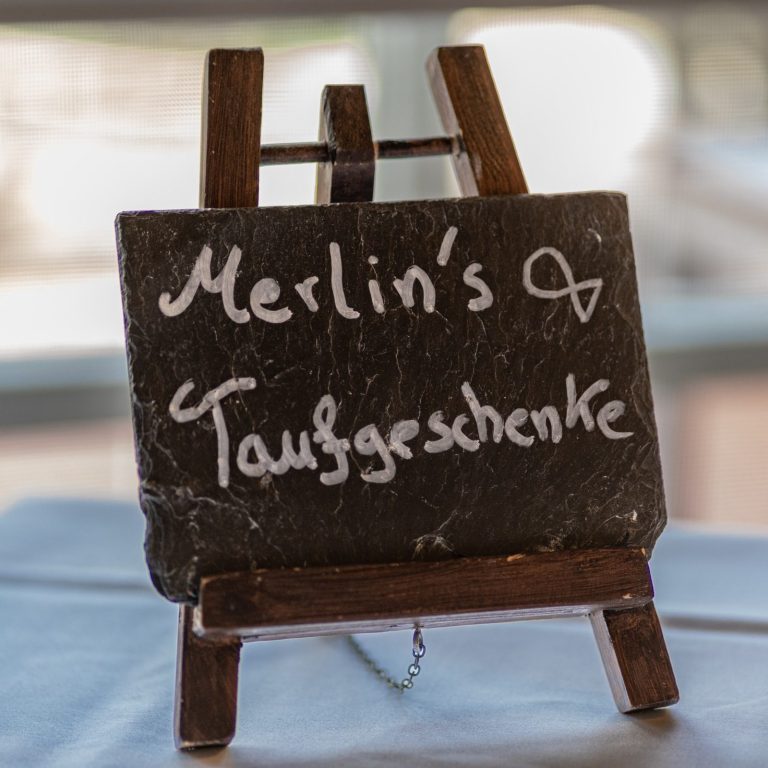 Merlin's
Taufgeschenke